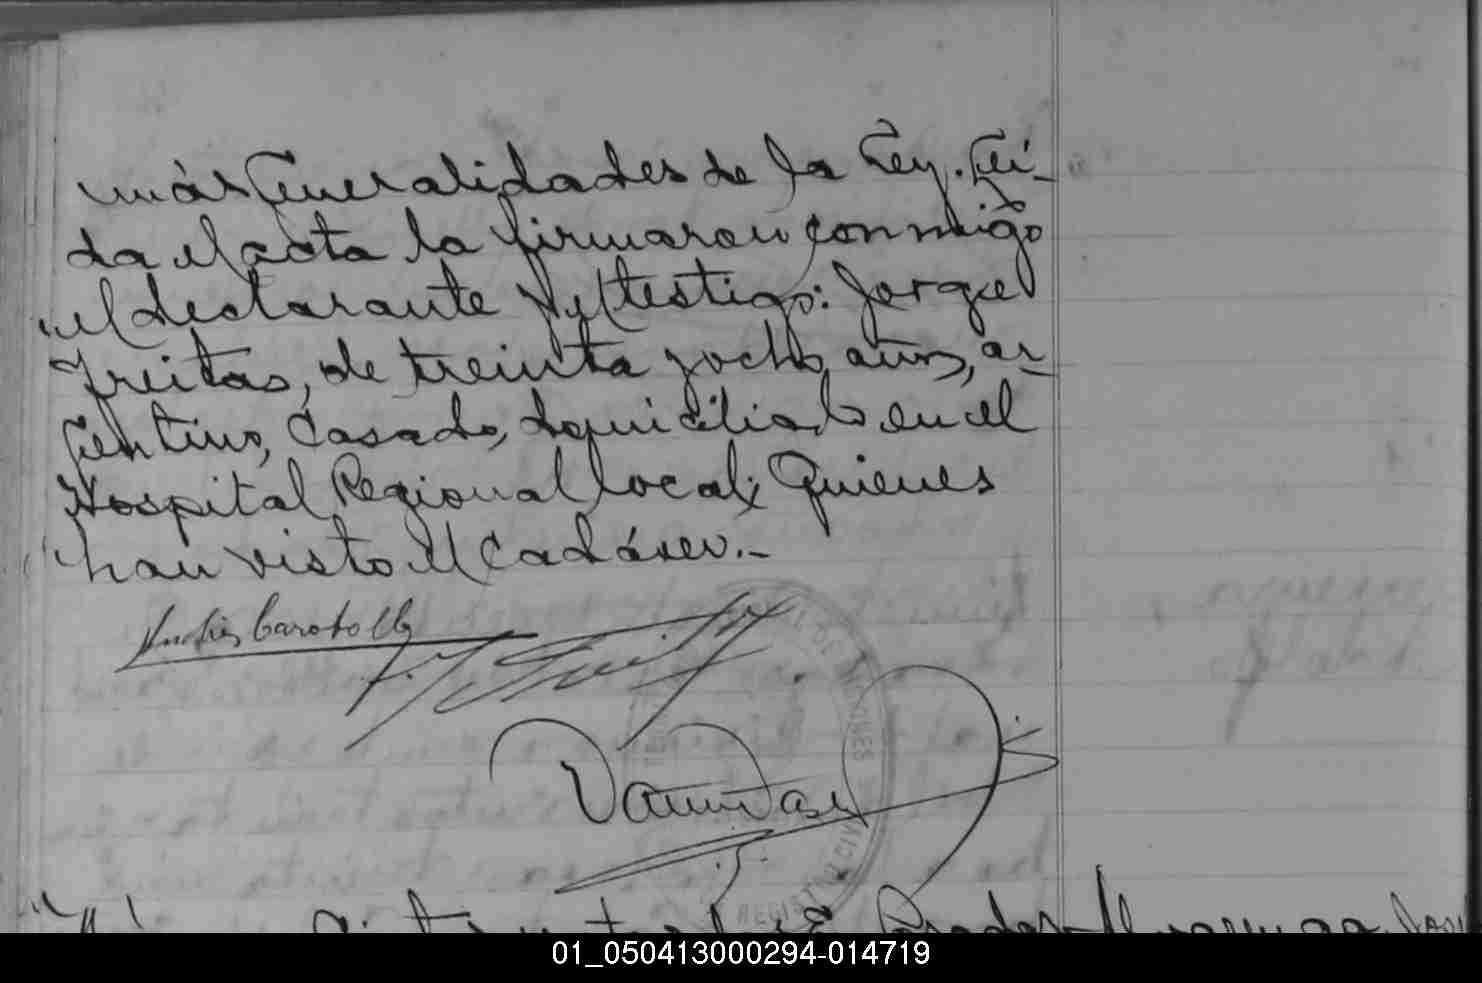 más Generalidades de la Ley. Leí-
da el acta la firmaron conmigo
el declarante y el testigo: Jorge
Freitas, de treinta y ocho años, ar-
gentino, Casado, domiciliado en el
Hospital Regional local; Quienes
han visto el Cadáver.-
REGISTRO
01_050413000294-014719